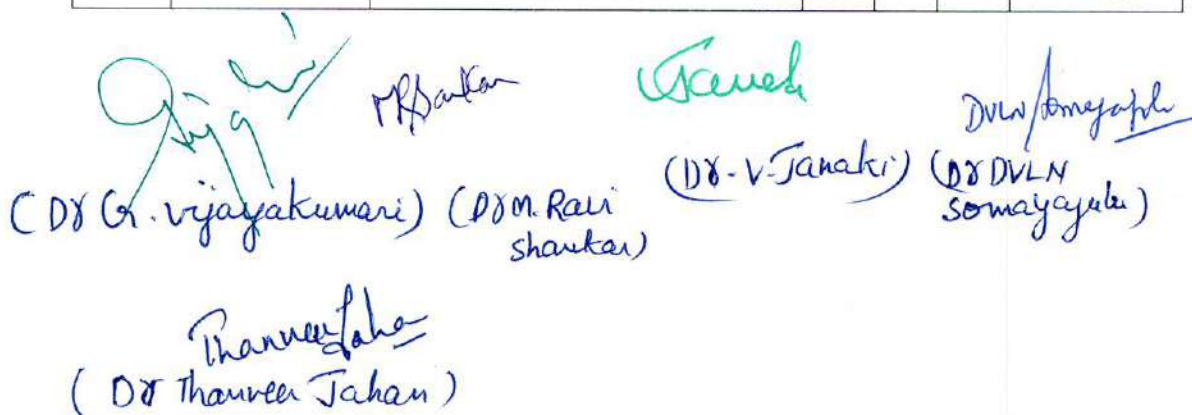 MRSankar
Janaki
DVLN Somayajulu
(Dr G. Vijayakumari) (Dr M. Ravi
shankar)
(Dr. V. Janaki) (Dr DVLN
Somayajulu)
Thanveer Jahan
(Dr Thanveer Jahan)